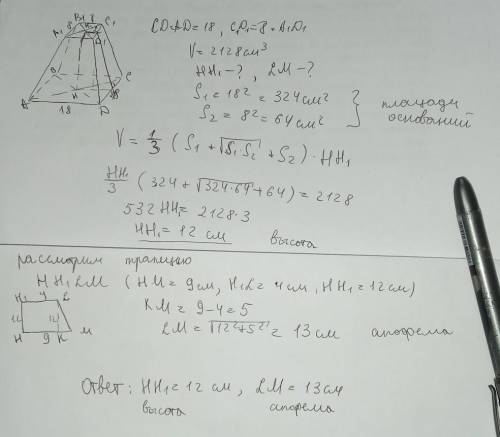 B₁ 8 C₁
A₁ 8 D₁
B C
H
A 18 D
18
CD=AD=18, CD₁=8=A₁D₁
V=2128см³
HH₁-?, LM-?
S₁=18²=324см²
S₂=8²=64см²
} площади оснований
V=1/3(S₁+√S₁·S₂+S₂)·HH₁
HH₁/3(324+√324·64+64)=2128
532HH₁=2128·3
HH₁=12 см высота
рассмотрим трапецию
HH₁LM (HM=9см, H₁L=4см, HH₁=12см)
H₁ 4 L
12 12
H 9 K M
KM=9-4=5
LM=√12²+5²=13см апофема
Ответ: HH₁=12 см, LM=13см
высота апофема